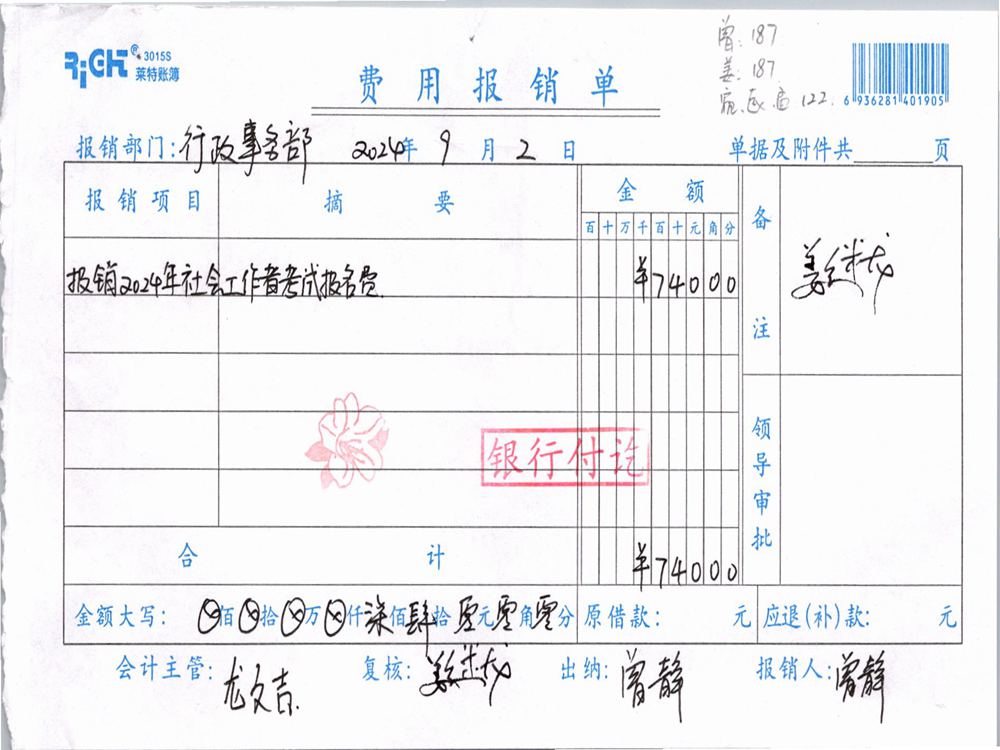 曾:187
姜:187
122.
RiGHT® 3015S
莱特账簿
6 936281 401905
费用报销单
报销部门:行政事务部 2024年 9 月 2 日 单据及附件共 页
报销项目 摘要 金额 备注
百 十 万 千 百 十 元 角 分
报销2024年社会工作者考试报名费 ¥74000
银行付讫
领导审批
合计 ¥74000
金额大写: ⊗佰⊗拾⊗万⊗仟柒佰肆拾零元零角零分 原借款: 元 应退(补)款: 元
会计主管:龙文吉 复核: 出纳:曾静 报销人:曾静